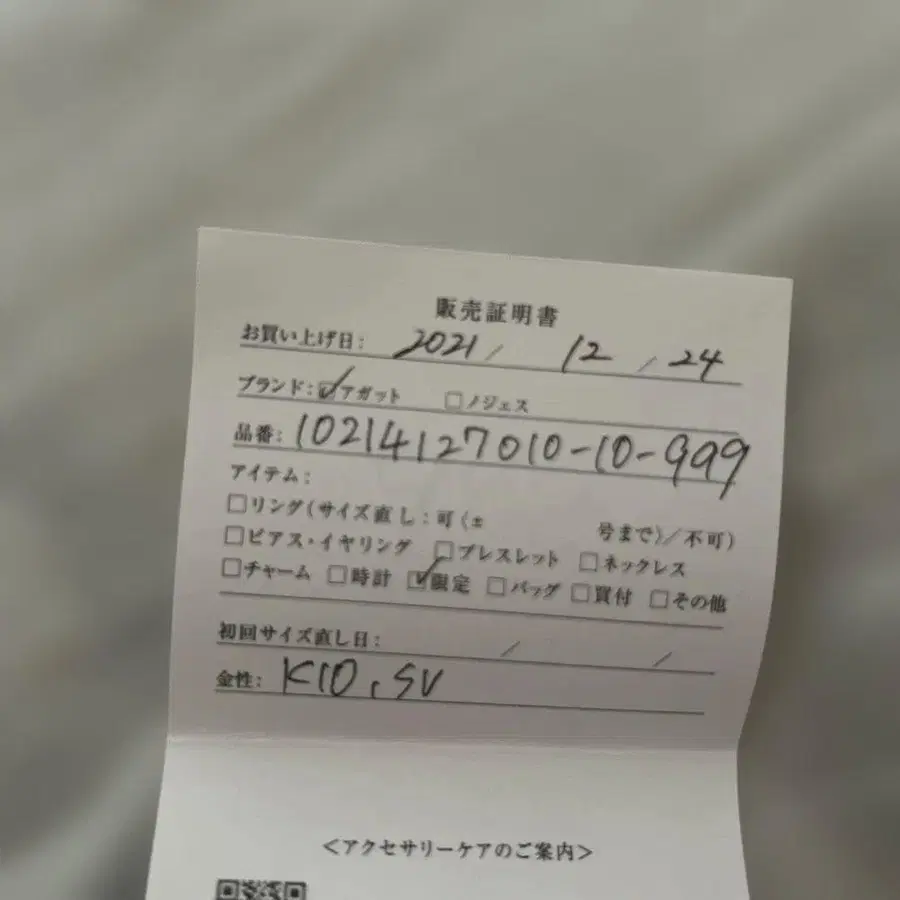 販売証明書
お買い上げ日: 2021 / 12 / 24
ブランド: ☑アガット □ノジェス
品番: 10214127010-10-999
アイテム:
□リング(サイズ直し: 可(± 号まで)/不可)
□ピアス・イヤリング □ブレスレット □ネックレス
□チャーム □時計 ☑限定 □バッグ □買付 □その他
初回サイズ直し日: / /
金性: K10, SV
<アクセサリーケアのご案内>